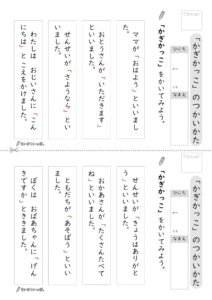 「かぎかっこ」のつかいかた
ひにち
なまえ
「かぎかっこ」をかいてみよう。
ママが「おはよう」といいまし
た。
おとうさんが「いただきます」
といいました。
せんせいが「さようなら」とい
いました。
わたしは おじいさんに「こん
にちは」とこえをかけました。
「かぎかっこ」のつかいかた
ひにち
なまえ
「かぎかっこ」をかいてみよう。
せんせいが「きょうはありがと
う」といいました。
おかあさんが「たくさんたべて
ね」といいました。
ともだちが「あそぼう」といい
ました。
ぼくは おばあちゃんに「げん
きですか」とききました。